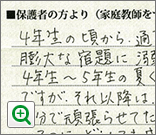 ■保護者の方より（家庭教師を
4年生の頃から、通
膨大な宿題に溺
4年生～5年生の夏く
ですが、それ以降は、
分で頑張らせてた